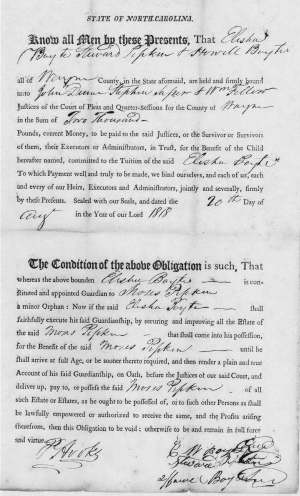 STATE OF NORTH CAROLINA.
Know all Men by these Presents, That Elisha
Steward Pipkin &
all of Wayne County, in the State aforesaid, are held and firmly bound
unto John
Justices of the Court of Pleas and Quarter-Sessions for the County of Wayne
in the Sum of Two Thousand
Pounds, current Money, to be paid to the said Justices, or the Survivor or Survivors
of them, their Executors or Administrators, in Trust, for the Benefit of the Child
herein after named, committed to the Tuition of the said Elisha
To which Payment well and truly to be made, we bind ourselves, and each of us, each
and every of our Heirs, Executors and Administrators, jointly and severally, firmly
by these Presents. Sealed with our Seals, and dated the 20th Day of
Aug in the Year of our Lord 1818
The Condition of the above Obligation is such, That
whereas the above bounden Elisha is con-
stituted and appointed Guardian to Moses Pipkin
a minor Orphan: Now if the said Elisha shall
faithfully execute his said Guardianship, by securing and improving all the Estate of
the said Moses Pipkin that shall come into his possession,
for the Benefit of the said Moses Pipkin until he
shall arrive at full Age, or be sooner thereto required, and then render a plain and true
Account of his said Guardianship, on Oath, before the Justices of our said Court, and
deliver up, pay to, or possess the said Moses Pipkin of all
such Estate or Estates, as he ought to be possessed of, or to such other Persons as shall
be lawfully empowered or authorized to receive the same, and the Profits arising
therefrom, then this Obligation to be void: otherwise to be and remain in full force
and virtue.
P. Hooks